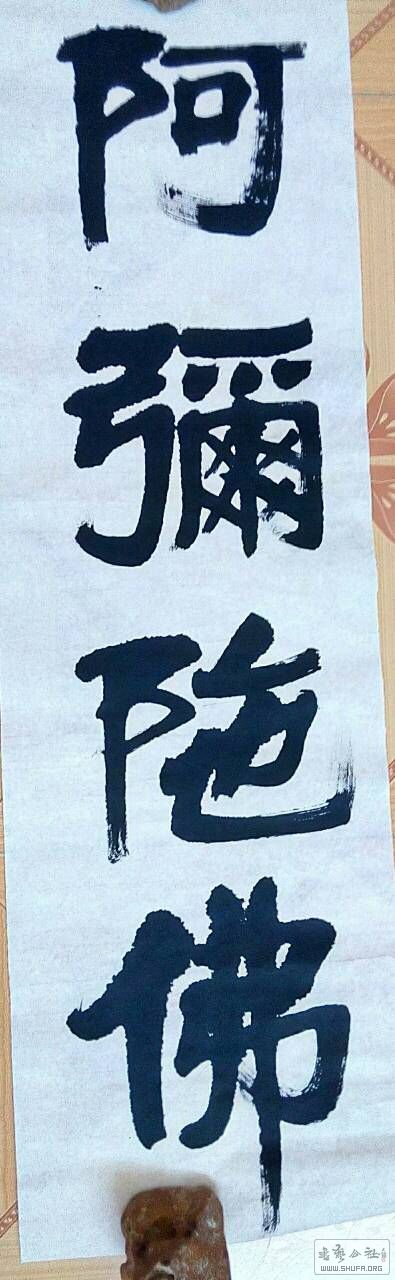 阿彌陁佛
书艺公社
WWW.SHUFA.ORG